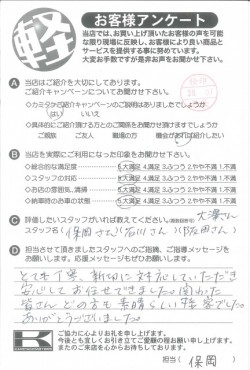 軽
お客様アンケート
当店では、お買い上げ頂いたお客様の声を可能
な限り現場に反映し、お客様により良い商品と
サービスを提供する事に努めています。
大変お手数ですが是非お声をお聞かせ下さい。
A 当店はご紹介を大切にしております。
ご紹介キャンペーンについてお聞かせ下さい。
◇カミタケご紹介キャンペーンのご説明はありましたでしょうか
はい いいえ
◇具体的にご紹介頂ける方とのご関係をお聞かせ頂けますでしょうか
ご親族 ご友人 職場の方 機会があれば紹介したい
B 当店を実際にご利用になった印象をお聞かせ下さい。
◇総合的な満足度 5.大満足 4.満足 3.ふつう 2.やや不満 1.不満
◇スタッフの対応 5.大満足 4.満足 3.ふつう 2.やや不満 1.不満
◇お店の雰囲気、清掃 5.大満足 4.満足 3.ふつう 2.やや不満 1.不満
◇納車時のお車の状態 5.大満足 4.満足 3.ふつう 2.やや不満 1.不満
C 評価したいスタッフがいれば教えてください。(複数回答可)
大澤さん
スタッフ名(保岡さん)(石川さん)(飯田さん)
D 担当させて頂きましたスタッフへのご指摘、ご指導メッセージを
お願いします。応援メッセージもぜひお願いします。
とても丁寧、親切に対応していただき
安心してお任せできました。関わった
皆さんどの方も素晴らしい接客でした。
ありがとうございました。
K
ご協力に心よりお礼を申し上げます。
今後とも宜しくお引き立てご愛顧の程お願い申し上げます。
またのご来店を心からお待ちしております。
担当(保岡)